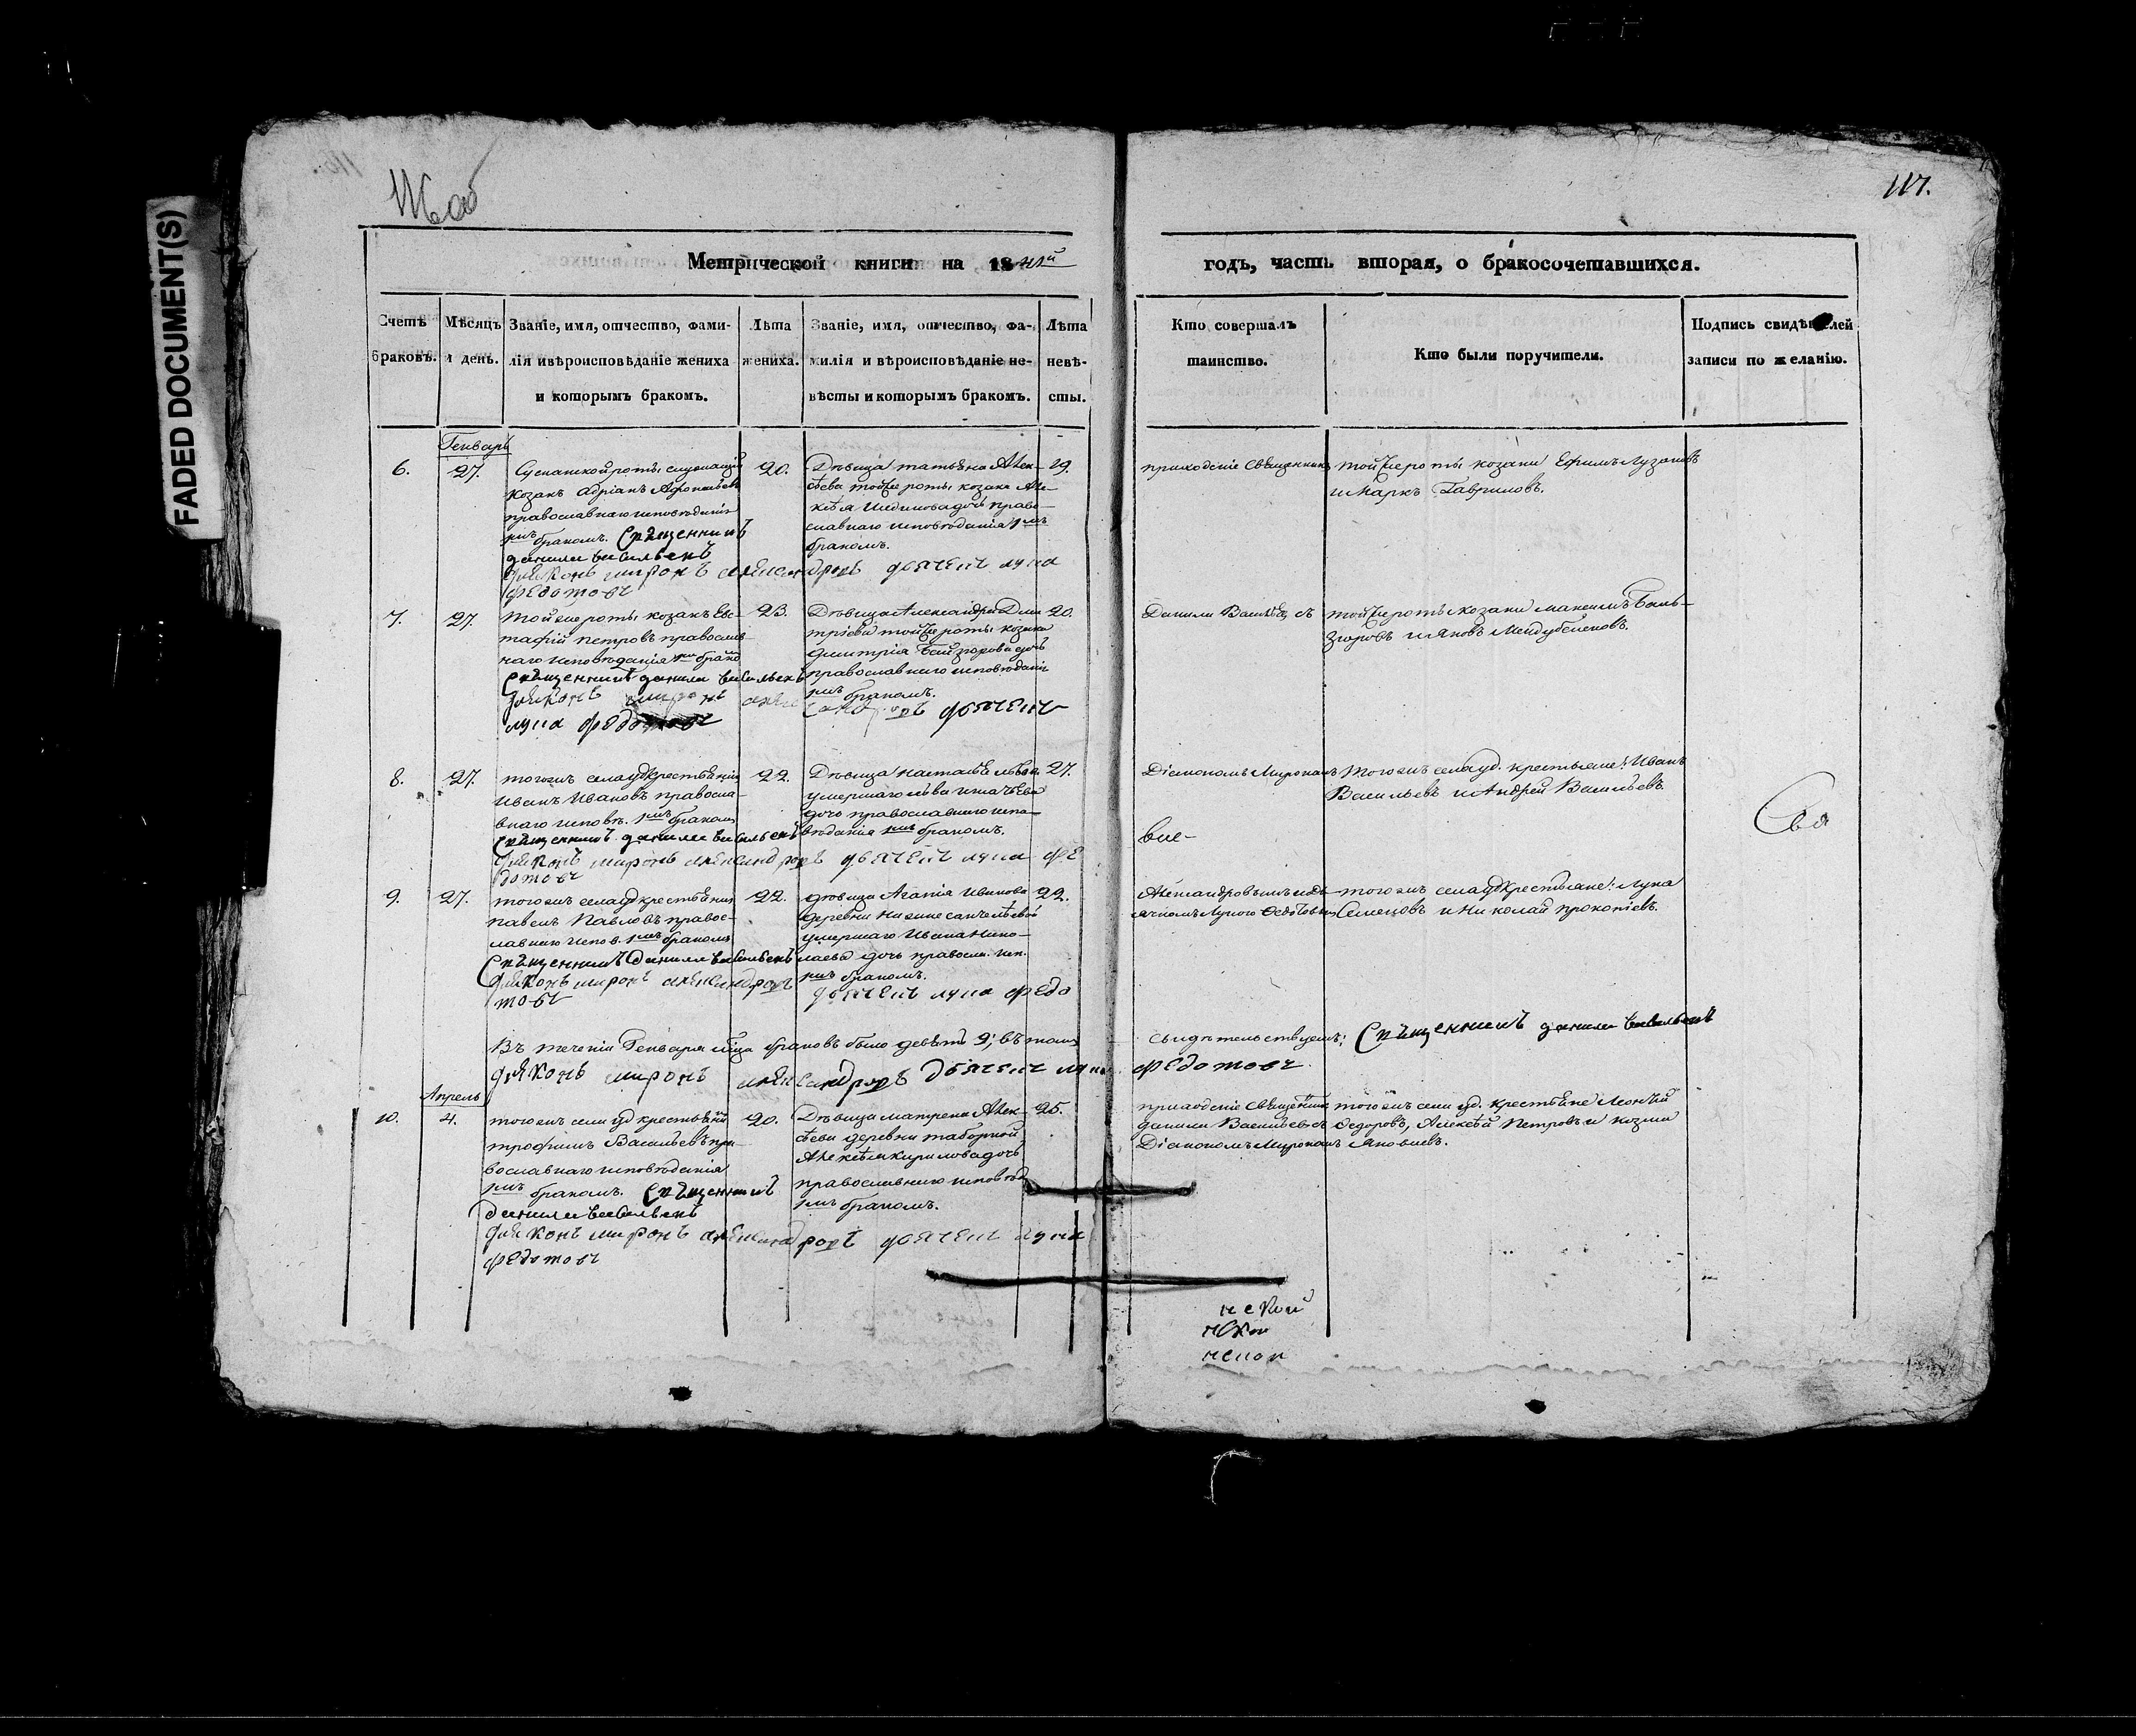 FADED DOCUMENT(S)
117.
Метрической книги на 1841й
годъ, часть вторая, о бракосочетавшихся.
Счетъ браковъ.
Мѣсяцъ и день.
Званіе, имя, отчество, фами-
лія и вѣроисповѣданіе жениха
и которымъ бракомъ.
Лѣта
жениха.
Званіе, имя, отчество, фа-
милія и вѣроисповѣданіе не-
вѣсты и которымъ бракомъ.
Лѣта
невѣ-
сты.
Кто совершалъ
таинство.
Кто были поручители.
Подпись свидѣтелей
записи по желанію.
Генварь
6.
27.
козакъ Адріанъ
православнаго исповѣданія
1мъ бракомъ. Священникъ
данила васильевъ
дьяконъ миронъ александровъ дьячекъ лука
федотовъ
20.
Дѣвица татьяна Алек-
сѣева тойже роты козака Але-
ксѣя дочь право-
славнаго исповѣданія 1мъ
бракомъ.
19.
приходскіе Священникъ
тойже роты козаки Ефимъ
и Маркъ Гавриловъ.
7.
27.
тойже роты козакъ Евс-
тафій петровъ православ-
наго исповѣданія 1мъ брако
Священникъ данила васильевъ
дьяконъ миронъ александровъ дьячекъ
лука федотовъ
23.
Дѣвица Александра Дми-
тріева тойже роты козака
димитрія дочь
православнаго исповѣданія
1мъ бракомъ.
20.
Данила Васильевъ съ
тойже роты козаки максимъ
и Яковъ
8.
27.
тогожъ села уд крестьянинъ
Иванъ Ивановъ правосла-
внаго исповѣ. 1мъ бракомъ
Священникъ данила васильевъ
дьяконъ миронъ александровъ дьячекъ лука фе
дотовъ
22.
Дѣвица наталья львова
умершаго льва игнатьева
дочь православнаго испо-
вѣданія 1мъ бракомъ.
27.
Діакономъ Мирономъ
тогожъ села уд. крестьяне: Иванъ
Васильевъ и Андрей Васильевъ.
9.
27.
тогожъ села уд крестьянинъ
павелъ Павловъ правос-
лавнаго испов. 1мъ бракомъ
Священникъ данила васильевъ
дьяконъ миронъ александровъ
дьячекъ лука федо
товъ
22.
дѣвица Агапія Иванова
деревни
умершаго Ивана Нико-
лаева дочь правосла. исп.
1мъ бракомъ.
22.
Александровымъ и дь-
ячкомъ Лукою Федотовымъ
тогожъ села уд крестьяне: Лука
Семеновъ и Николай прокопіевъ.
Въ теченіи Генваря мѣца браковъ было девять 9; въ томъ
свидѣтельствуемъ: Священникъ данила васильевъ
дьяконъ миронъ александровъ дьячекъ лука
федотовъ.
Апрель
10.
4.
тогожъ села уд крестьянинъ
трофимъ Васильевъ пра-
вославнаго исповѣданія
1мъ бракомъ. Священникъ
данила васильевъ
дьяконъ миронъ александровъ дьячекъ лука
федотовъ
20.
Дѣвица матрена Алек-
сѣева деревни таборной
Алексѣя кирилова дочь
православнаго исповѣд
1мъ бракомъ.
25.
приходскіе Священникъ
данила Васильевъ съ
Діакономъ Мирономъ
тогожъ села уд. крестьяне Леонтій
Федоровъ, Алексѣй Петровъ и козма
Яковлевъ.